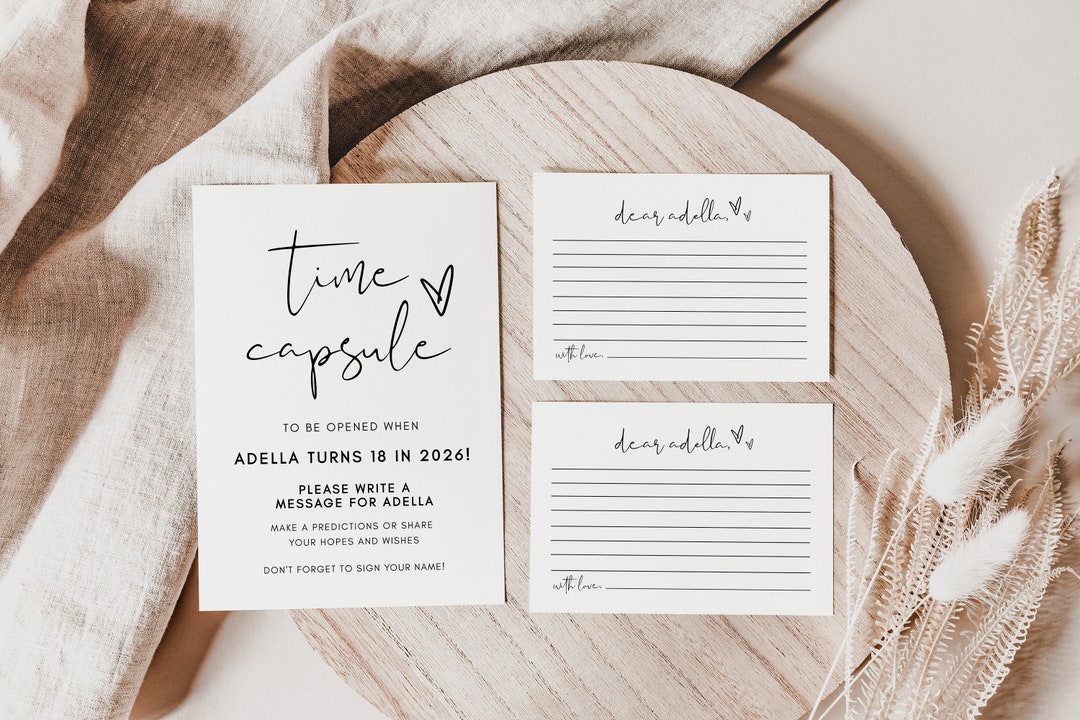 time
capsule
TO BE OPENED WHEN
ADELLA TURNS 18 IN 2026!
PLEASE WRITE A
MESSAGE FOR ADELLA
MAKE A PREDICTIONS OR SHARE
YOUR HOPES AND WISHES
DON'T FORGET TO SIGN YOUR NAME!
dear adella,
with love,
dear adella,
with love,